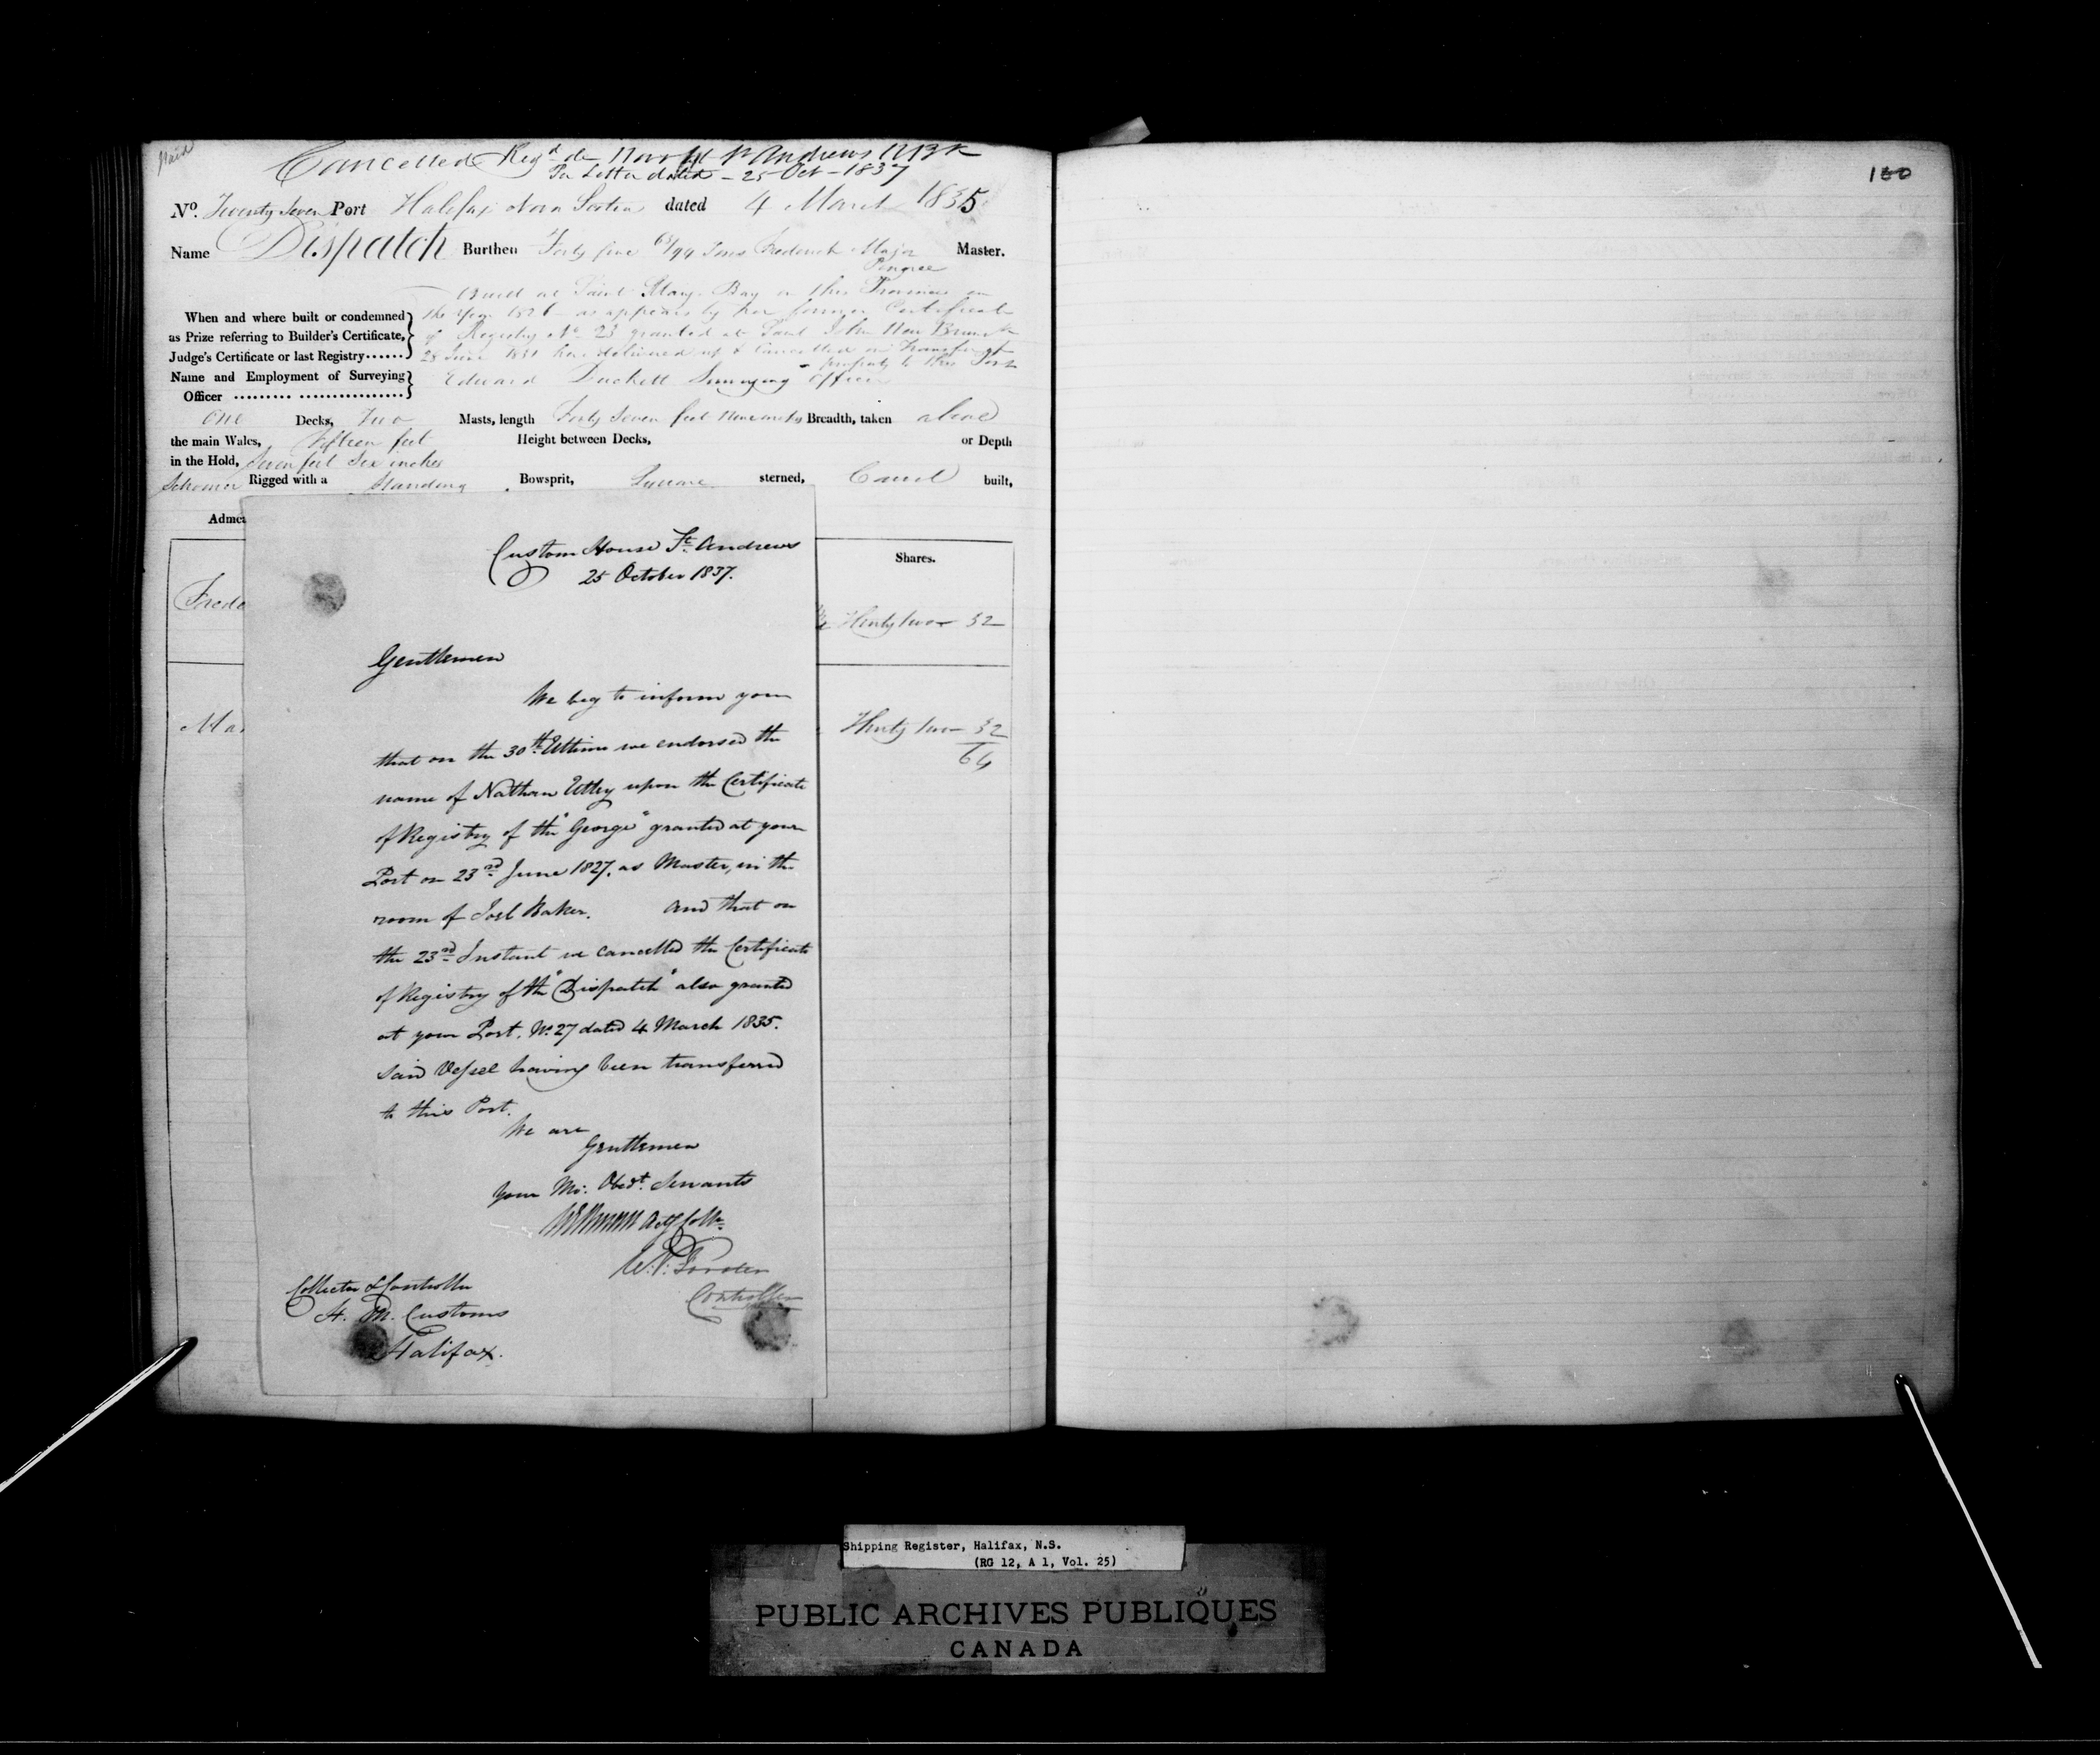 Paid
Cancelled Regd de Novo at St Andrews N Bk
Per Letter dated - 25 Oct - 1837
No. Twenty Seven Port Halifax Nova Scotia dated 4 March 1835
Name Dispatch Burthen Forty five 68/94 Tons Frederick Major Master.
Pingree
Built at Saint Mary Bay in this Province in
the year 1826 as appears by her former Certificate
When and where built or condemned
as Prize referring to Builder's Certificate, of Registry No. 23 granted at Saint John New Brunsk
Judge's Certificate or last Registry...... 28 June 1831 here delivered up & Cancelled on Transfer of
property to this Port
Name and Employment of Surveying Edward Duckett Surveying Officer
Officer ......... ................
One Decks, Two Masts, length Forty Seven feet Nine inches Breadth, taken above
the main Wales, Fifteen feet Height between Decks, or Depth
in the Hold, Seven feet Six inches
Schooner Rigged with a Standing Bowsprit, Square sterned, Carvel built,
Adme
Shares.
Frede
Thirty two 32
Ma
Thirty two 32
64
Custom House St. Andrews
25 October 1837.
Gentlemen
We beg to inform you
that on the 30th Ultimo we endorsed the
name of Nathan Utley upon the Certificate
of Registry of the "George" granted at your
Port on 23rd June 1827. as Master, in the
room of Joel Baker. And that on
the 23rd Instant we cancelled the Certificate
of Registry of the "Dispatch" also granted
at your Port. No. 27 dated 4 March 1835.
Said Vessel having been transferred
to this Port.
We are
Gentlemen
Your Mo: Obedt. Servants
Actg Collr.
Controller
Collector & Controller
H. M. Customs
Halifax.
160
Shipping Register, Halifax, N.S.
(RG 12, A 1, Vol. 25)
PUBLIC ARCHIVES PUBLIQUES
CANADA